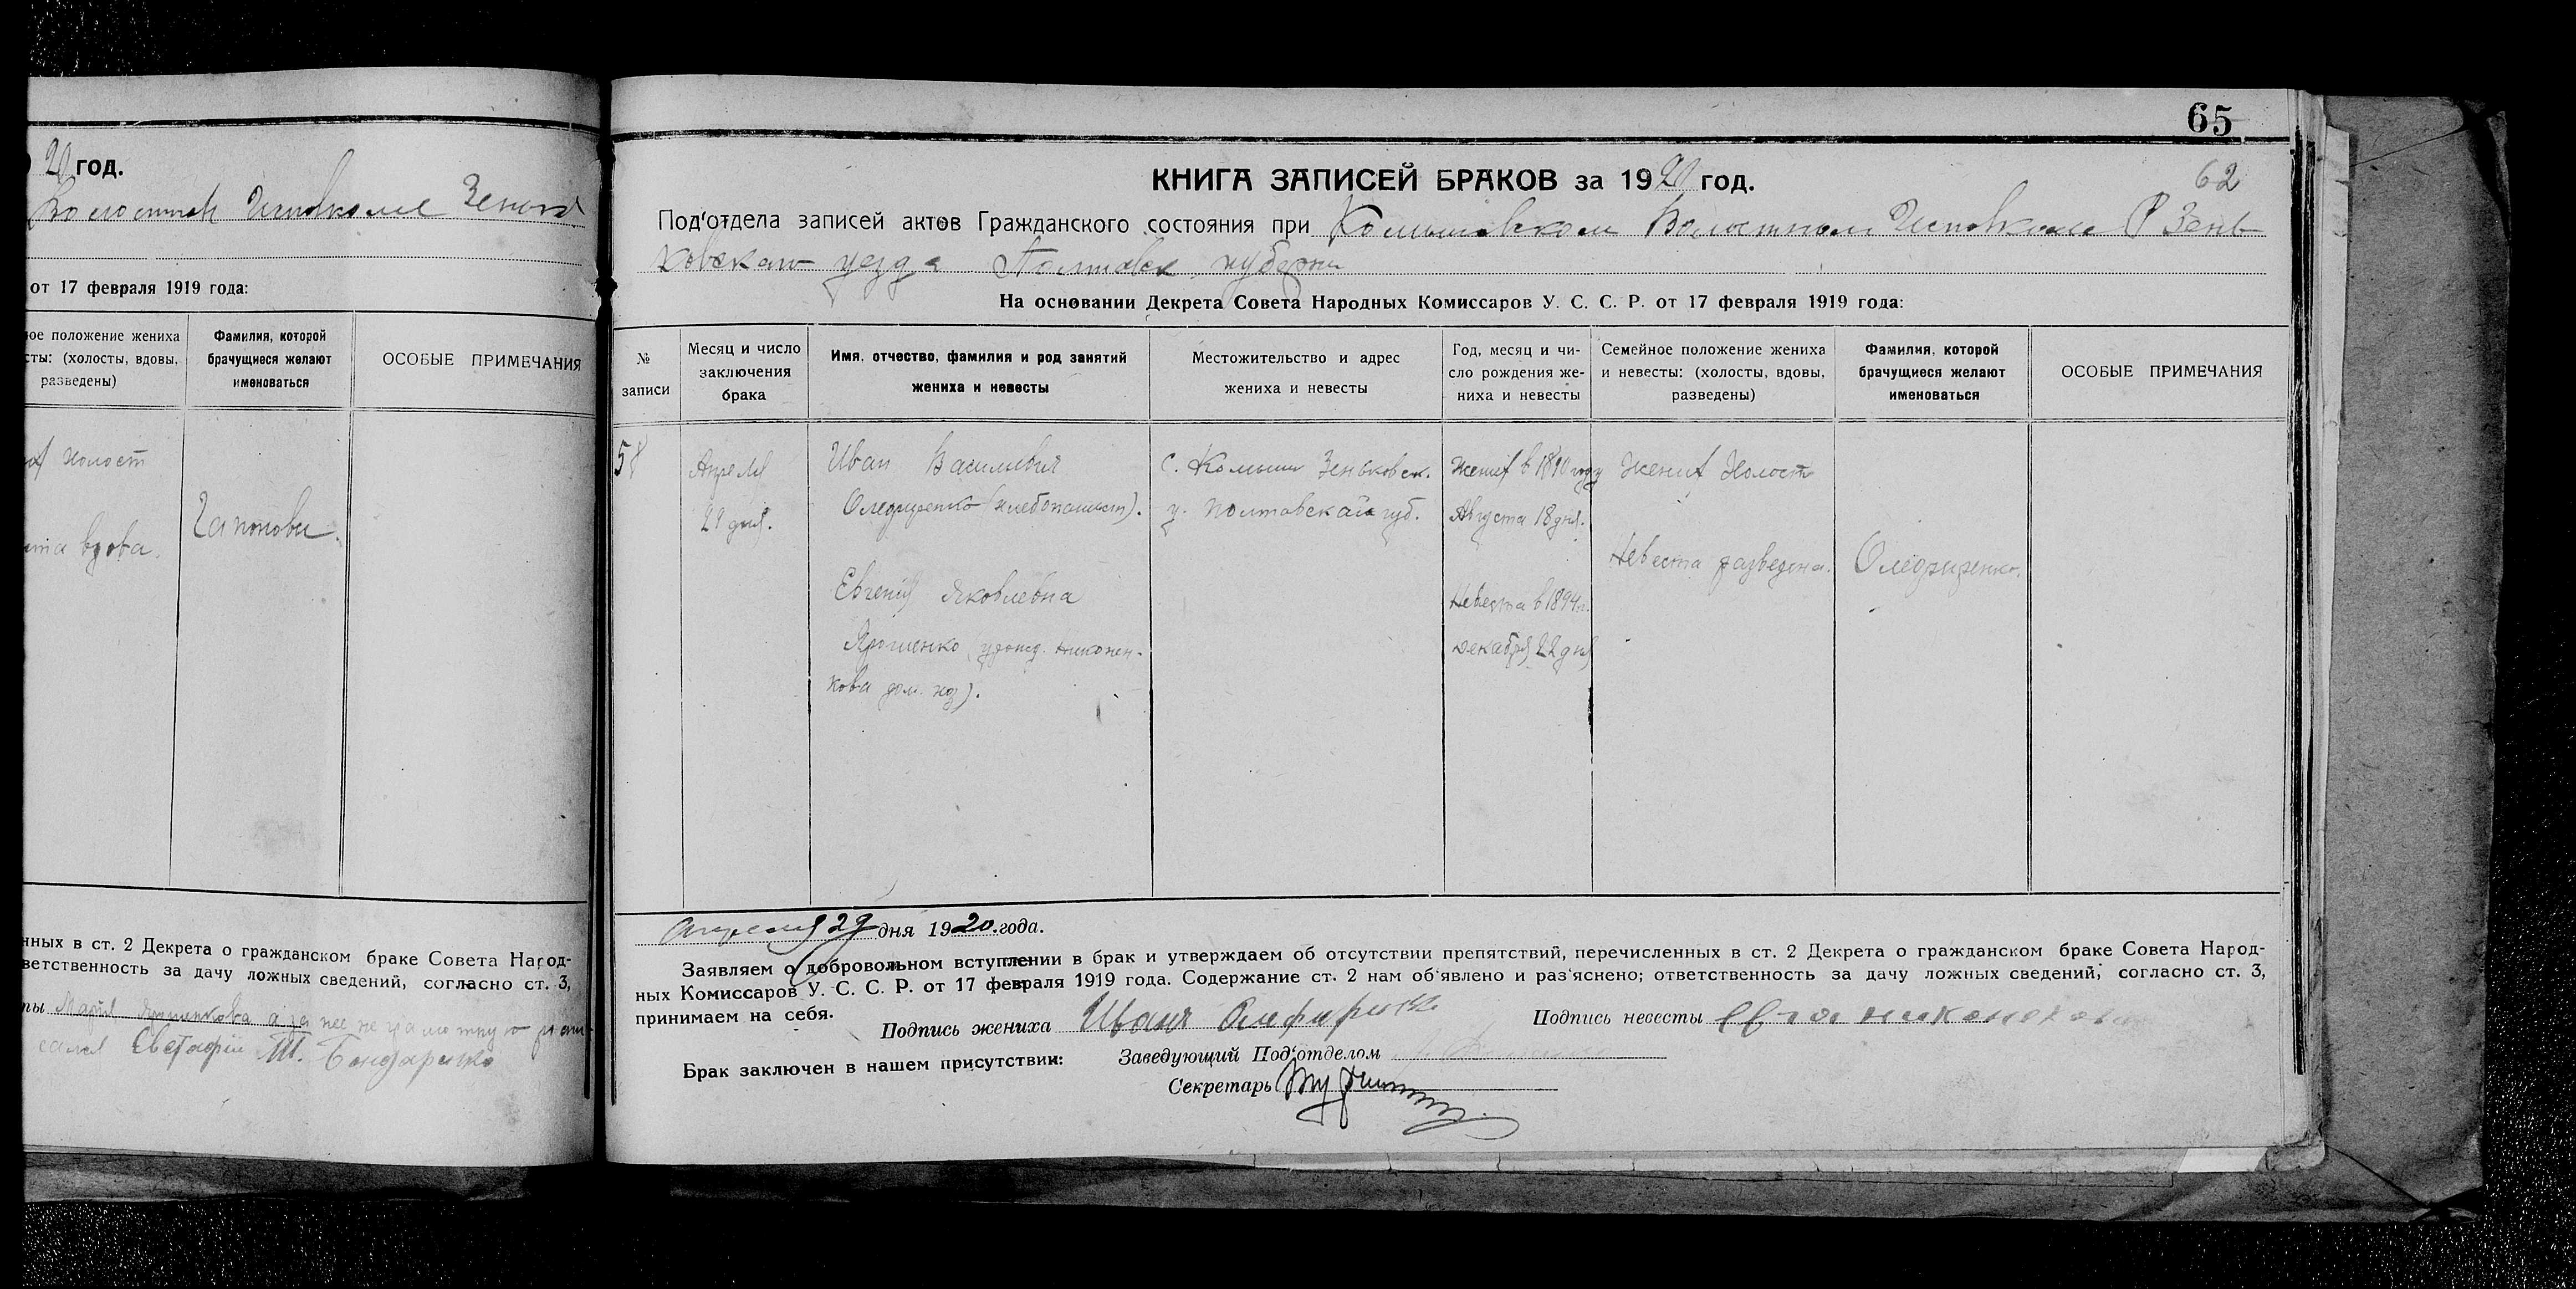 20 год.
Волостном Исполкоме Зеньков
от 17 февраля 1919 года:
ое положение жениха
сты: (холосты, вдовы,
разведены)
Фамилия, которой
брачущиеся желают
именоваться
ОСОБЫЕ ПРИМЕЧАНИЯ
холост
вдова.
нных в ст. 2 Декрета о гражданском браке Совета Народ-
ветственность за дачу ложных сведений, согласно ст. 3,
ты Мария а за нее неграмотную
Бондаренко
65
62
КНИГА ЗАПИСЕЙ БРАКОВ за 1920 год.
Под'отдела записей актов Гражданского состояния при Комышовском Волостном Исполкоме Зень-
ковскаго уезда Полтавск. губернии
На основании Декрета Совета Народных Комиссаров У. С. С. Р. от 17 февраля 1919 года:
№
записи
Месяц и число
заключения
брака
Имя, отчество, фамилия и род занятий
жениха и невесты
Местожительство и адрес
жениха и невесты
Год, месяц и чи-
сло рождения же-
ниха и невесты
Семейное положение жениха
и невесты: (холосты, вдовы,
разведены)
Фамилия, которой
брачущиеся желают
именоваться
ОСОБЫЕ ПРИМЕЧАНИЯ
58
Апреля
29 дня.
Иван Васильевич
Олефиренко (хлебопашест).
Евгения Яковлевна
Ярошенко урожд. Никонен-
кова дом. хоз).
с. Комыши Зеньковск.
у. Полтавской губ.
Жених в 1890 году
Августа 18 дня.
Невеста в 1894 г.
декабря 22 дня
Жених Холост
Невеста разведена.
Олефиренко.
Апреля 29 дня 1920 года.
Заявляем о добровольном вступлении в брак и утверждаем об отсутствии препятствий, перечисленных в ст. 2 Декрета о гражданском браке Совета Народ-
ных Комиссаров У. С. С. Р. от 17 февраля 1919 года. Содержание ст. 2 нам об'явлено и раз'яснено; ответственность за дачу ложных сведений, согласно ст. 3,
принимаем на себя.
Подпись жениха Иванъ
Подпись невесты
Брак заключен в нашем присутствии:
Заведующий Под'отделом
Секретарь